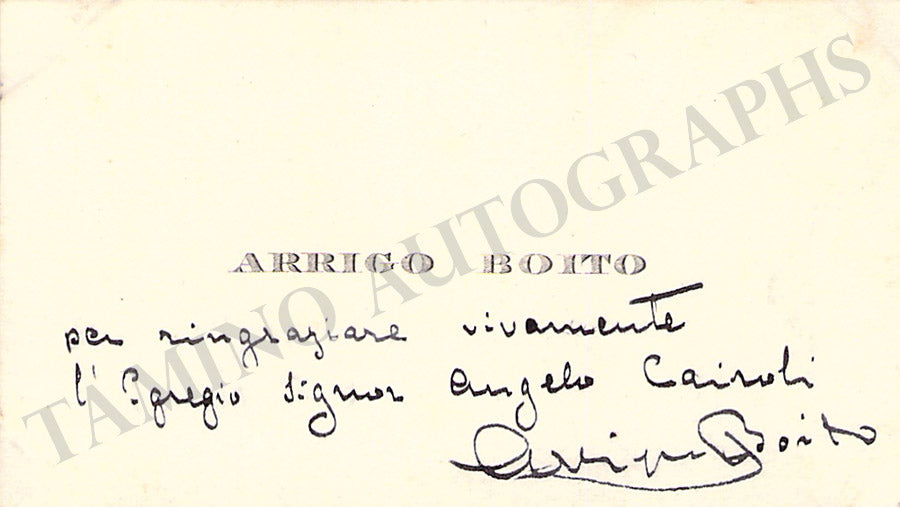 ARRIGO BOITO
per ringraziare vivamente
l'Egregio Signor Angelo Cairoli
Arrigo Boito
TAMINO AUTOGRAPHS